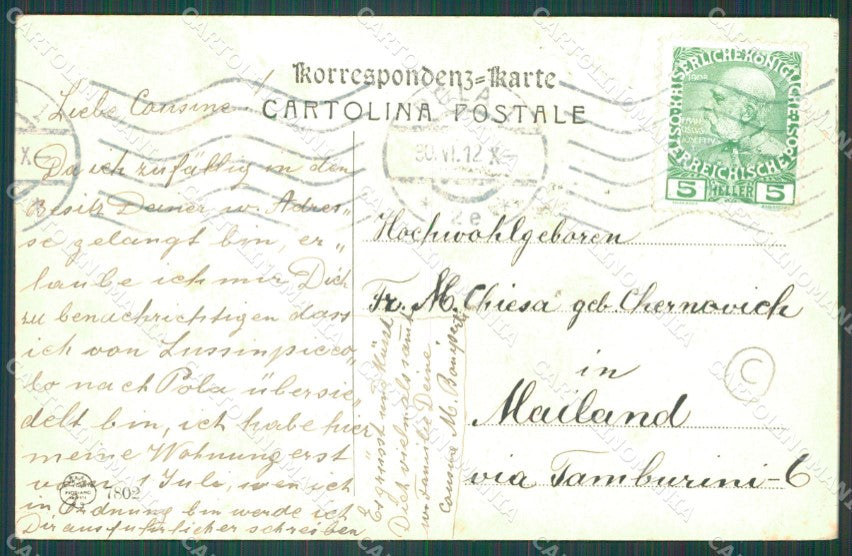 Korrespondenz=Karte
CARTOLINA POSTALE
Liebe Cousine!
Da ich zufällig in den
Besitz Deiner w. Adres„
se gelangt bin, er„
laube ich mir Dich
zu benachrichtigen dass
ich von Lussinpicco„
lo nach Pola übersie„
delt bin, ich habe hier
meine Wohnung erst
vom 1 Juli, wen ich
in Ordnung bin werde ich
Dir ausführlicher schreiben
Es grüsst und küsst
Dich vielmals samt
w. Familie Deine
Cousine M.
30.VI.12 X
KAISERLICHE KÖNIGLICHE
ÖSTERREICHISCHE
1908
5 HELLER 5
Hochwohlgeboren
Fr. M. Chiesa geb. Chernovich
in
Mailand
via Tamburini-6
C
7802
CARTOLINOMANIA